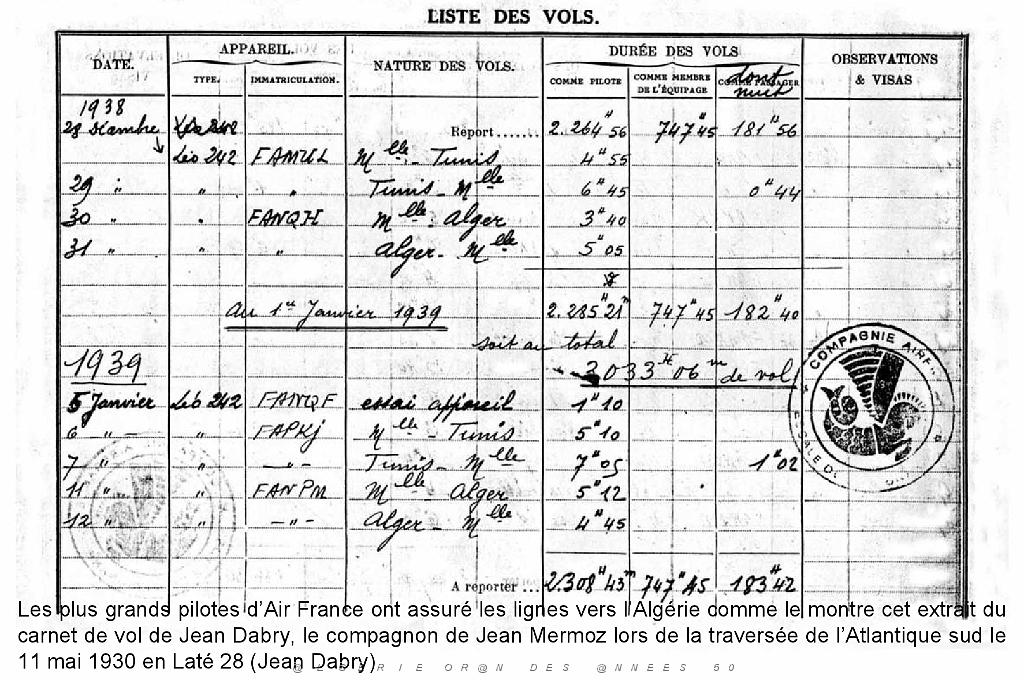 LISTE DES VOLS.
DATE. APPAREIL. NATURE DES VOLS. DURÉE DES VOLS OBSERVATIONS & VISAS
TYPE. IMMATRICULATION. COMME PILOTE COMME MEMBRE DE L'ÉQUIPAGE COMME PASSAGER dont nuit
1938
28 Décembre Report...... 2.264 H 56 747 H 45 181 H 56
Léo 242 FAMUL Mlle - Tunis 4 H 55
29 " " " Tunis - Mlle 6 H 45 0 H 44
30 " " FANQH Mlle - Alger 3 H 40
31 " " " Alger - Mlle 5 H 05
Au 1er Janvier 1939 2.285 H 21m 747 H 45 182 H 40
soit au total
1939 3033 H 06m de vol
5 Janvier Léo 242 FANQF essai appareil 1 H 10
6 - " - " FAPKJ Mlle - Tunis 5 H 10
7 " " - " - Tunis - Mlle 7 H 05 1 H 02
11 " " FANPM Mlle Alger 5 H 12
12 " " - " - Alger - Mlle 4 H 45
A reporter... 2.308 H 43m 747 H 45 183 H 42
COMPAGNIE AIR
Les plus grands pilotes d'Air France ont assuré les lignes vers l'Algérie comme le montre cet extrait du
carnet de vol de Jean Dabry, le compagnon de Jean Mermoz lors de la traversée de l'Atlantique sud le
11 mai 1930 en Laté 28 (Jean Dabry)
OR@N DES @NNEES 50